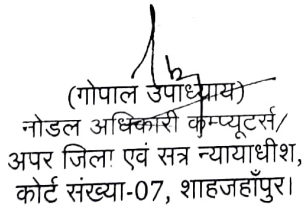 (गोपाल उपाध्याय)
नोडल अधिकारी कम्प्यूटर्स/
अपर जिला एवं सत्र न्यायाधीश,
कोर्ट संख्या-07, शाहजहाँपुर।